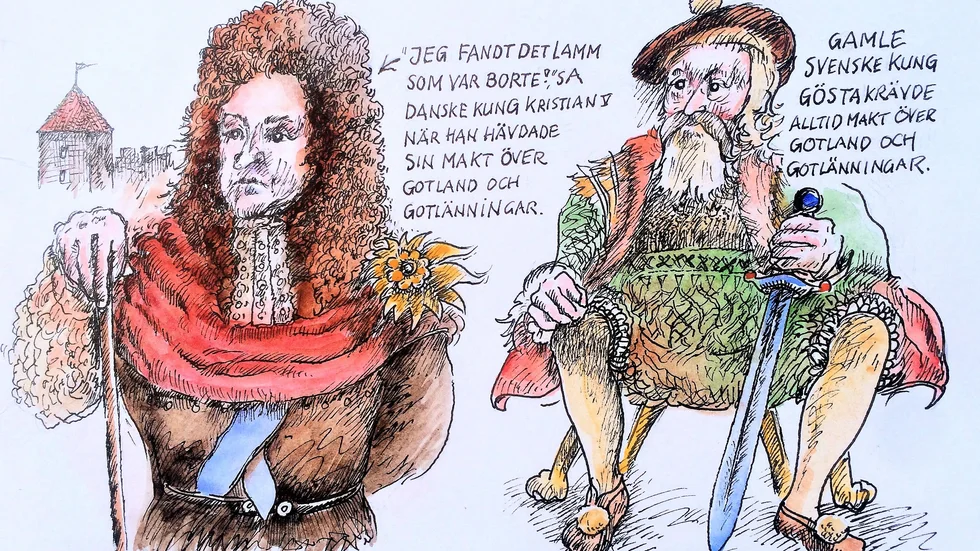 "JEG FANDT DET LAMM
SOM VAR BORTE!", SA
DANSKE KUNG KRISTIAN V
NÄR HAN HÄVDADE
SIN MAKT ÖVER
GOTLAND OCH
GOTLÄNNINGAR.
GAMLE
SVENSKE KUNG
GÖSTA KRÄVDE
ALLTID MAKT ÖVER
GOTLAND OCH
GOTLÄNNINGAR.